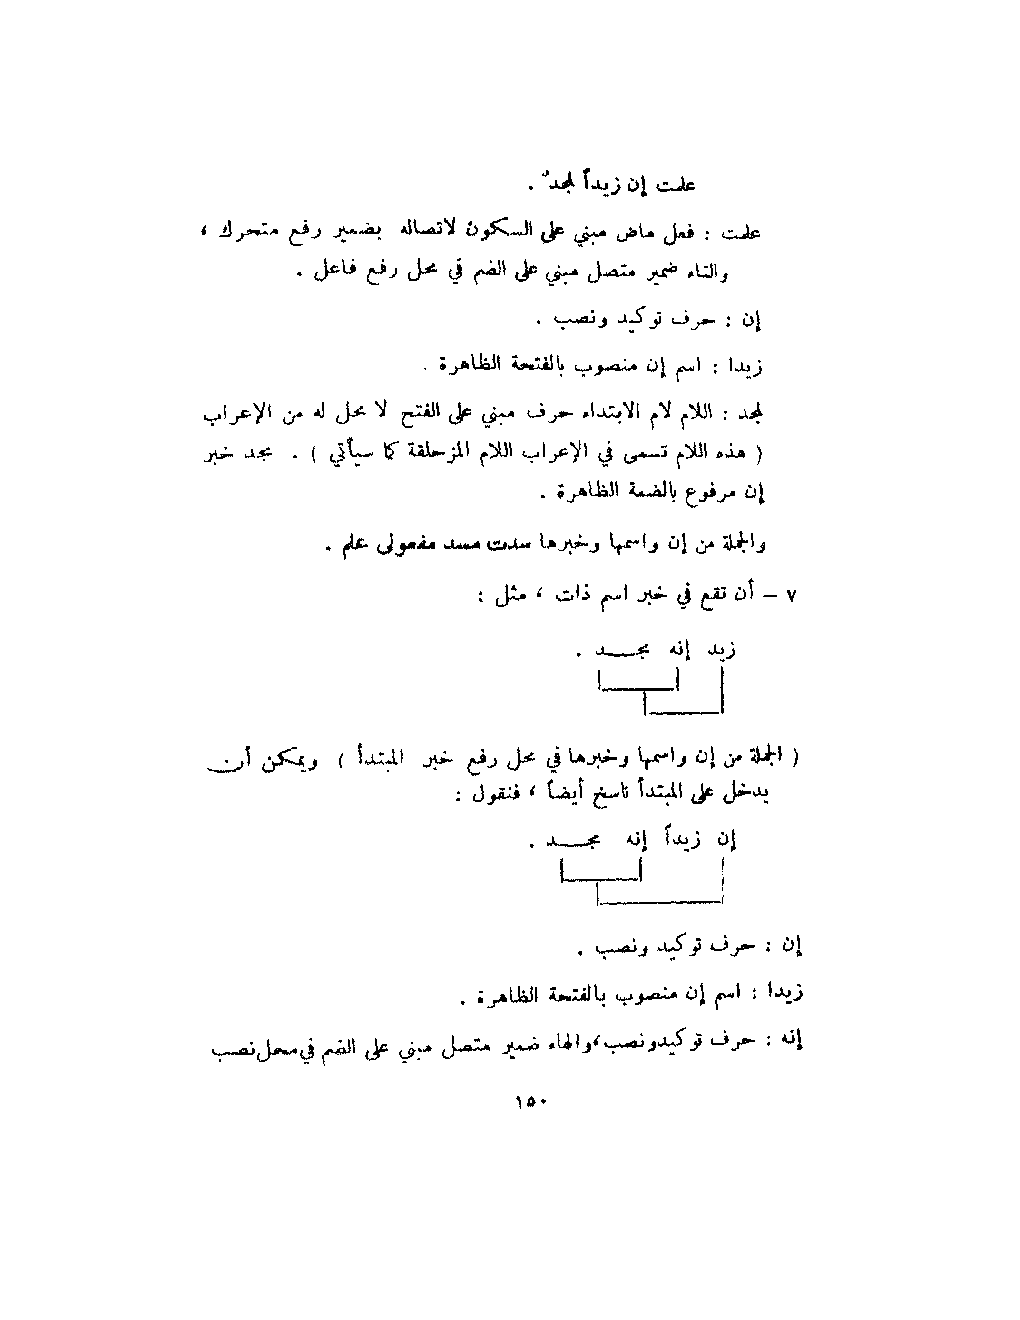 علمت إن زيداً لمجدٌ .
علمت : فعل ماض مبني على السكون لاتصاله بضمير رفع متحرك ،
والتاء ضمير متصل مبني على الضم في محل رفع فاعل .
إن : حرف توكيد ونصب .
زيدا : اسم إن منصوب بالفتحة الظاهرة .
لمجد : اللام لام الابتداء حرف مبني على الفتح لا محل له من الإعراب
( هذه اللام تسمى في الإعراب اللام المزحلقة كما سيأتي ) . مجد خبر
إن مرفوع بالضمة الظاهرة .
والجملة من إن واسمها وخبرها سدت مسد مفعولى علم .
٧ – أن تقع في خبر اسم ذات ، مثل :
زيد إنه مجـــد .
( الجملة من إن واسمها وخبرها في محل رفع خبر المبتدأ ) ويمكن أن
يدخل على المبتدأ ناسخ أيضاً ، فنقول :
إن زيداً إنه مجـــد .
إن : حرف توكيد ونصب .
زيدا : اسم إن منصوب بالفتحة الظاهرة .
إنه : حرف توكيدونصب،والهاء ضمير متصل مبني على الضم في محل نصب
١٥٠